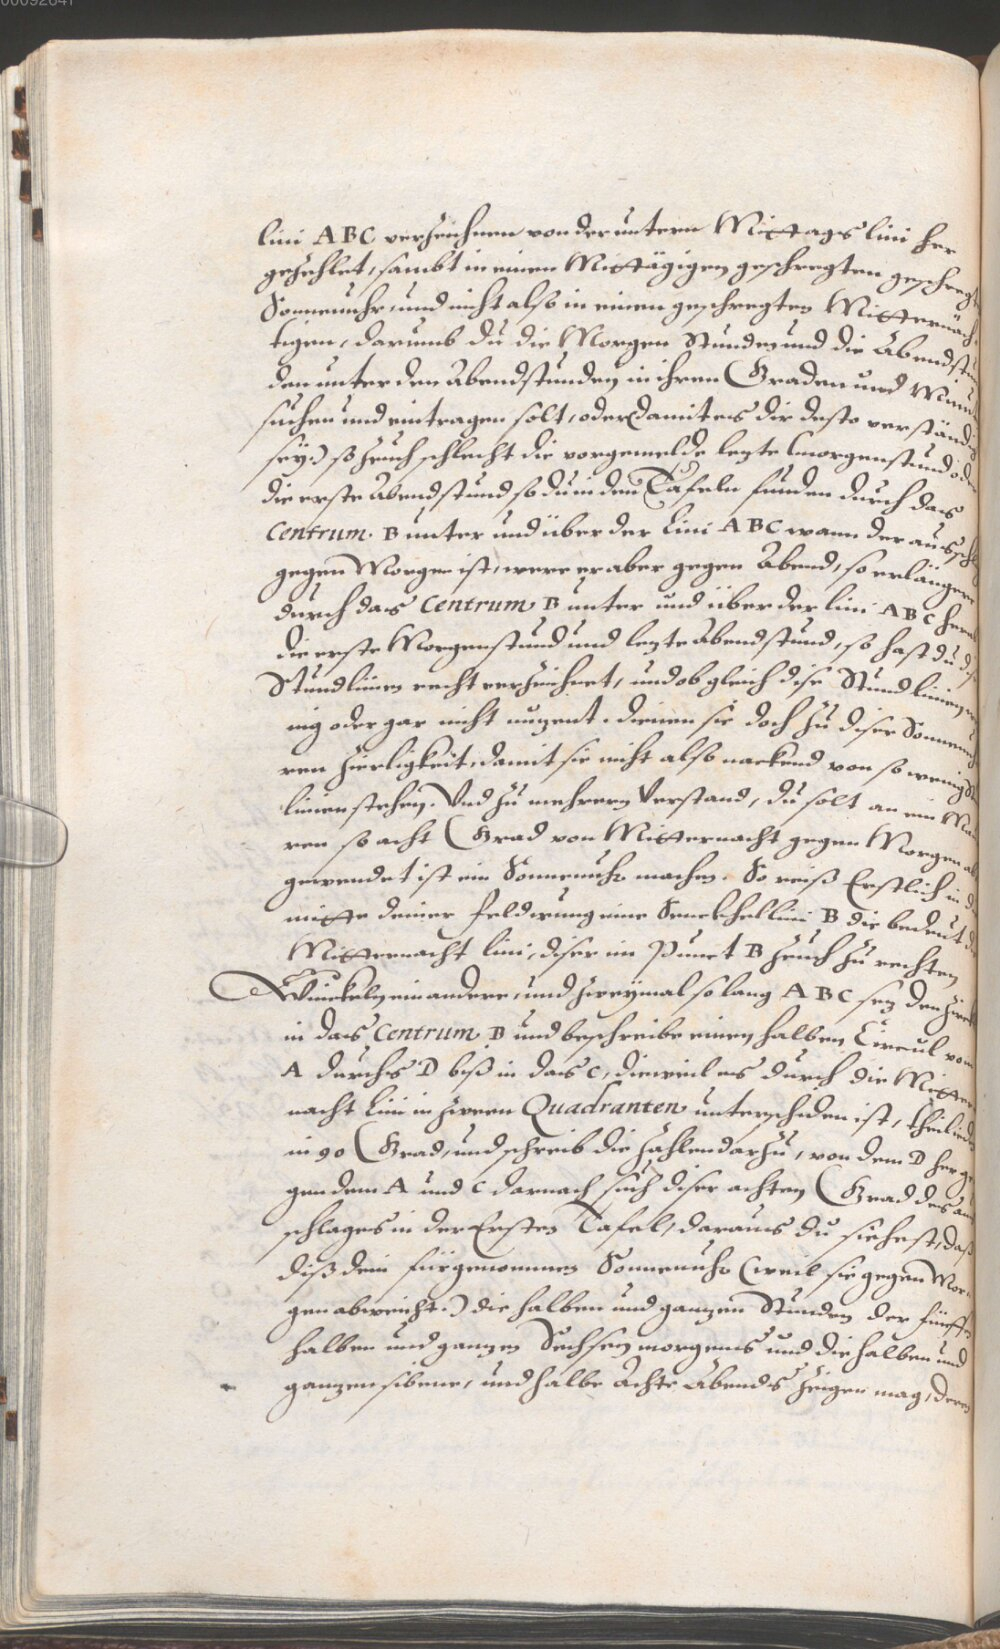 00092641
lini ABC verzeichnen von der untern Mittags lini her
gezehlet, sambt in einen Mittägigen geschregten geschregt
Sonnenuhr, und nicht also in einen geschregten Mitternäch-
tigen, darumb du die Morgen Stunden und die Abendstun
den unter den Abendstunden in ihren Graden und Minut
suchen und eintragen solt, oder (damit es dir desto verständig
sey) so zeuch schlecht die vorgemelde lezte morgenstund oder
die erste Abendstund so du in den Tafeln funden durch das
Centrum B unter und über der Lini ABC wann der ausschlag
gegen Morgen ist, were er aber gegen Abend, so erlängere
durch das Centrum B unter und über der lini ABC herab
die erste Morgenstund und lezte Abendstund, so hast du dise
Stundlinien recht verzeichnet, und ob gleich dise Stundlinien we
nig oder gar nicht nuzent, dienen sie doch zu diser Sonnenuh
ren Zierligkeit, damit sie nicht also nackend von so wenig St
linien stehen. Und zu mehrern Verstand, du solt an ein Mau
ren so acht Grad von Mitternacht gegen Morgen ab
gewendet ist ein Sonnenuhr machen. So reiß Erstlich in die
mitte deiner feldirung eine Senckhellini B die bedeut die
Mitternacht lini, diser im Punct B zeuch zu rechten
Winckeln ein andere, und zweymal so lang ABC sez den Zirck
in das Centrum B und beschreibe einen halben Circul vom
A durchs D biß in das C, dieweil es durch die Mitter
nacht Lini in zween Quadranten unterschiden ist, theil ieden
in 90 Grad, und schreib die Zahlen darzu, von dem D her ge
gen dem A und C darnach such diser achten Grad des aus
schlages in der Ersten Tafel, daraus du siehest, daß
diß dein fürgenommen Sonnenuhr (weil sie gegen Mor
gen abweicht.) die halben und ganzen Stunden der fünfften
halben und ganzen Sechsen morgens und die halben und
ganzen sibene, und halbe Achte Abends zeigen mag, deren